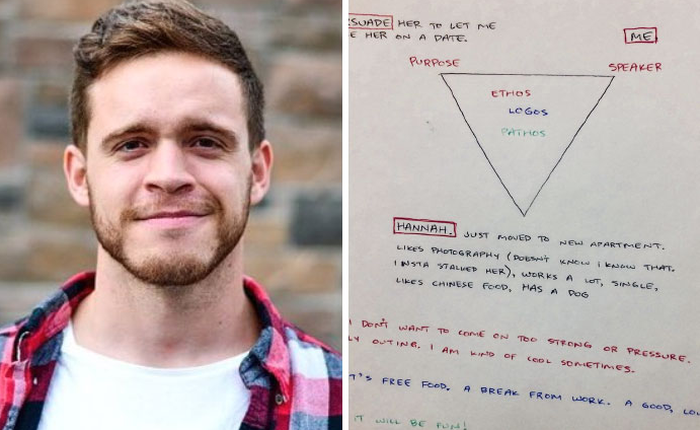 SUADE HER TO LET ME
E HER ON A DATE.
ME
PURPOSE
SPEAKER
ETHOS
LOGOS
PATHOS
HANNAH. JUST MOVED TO NEW APARTMENT.
LIKES PHOTOGRAPHY (DOESN'T KNOW I KNOW THAT.
I INSTA STALKED HER), WORKS A LOT, SINGLE,
LIKES CHINESE FOOD, HAS A DOG
I DON'T WANT TO COME ON TOO STRONG OR PRESSURE.
LY OUTING. I AM KIND OF COOL SOMETIMES.
T'S FREE FOOD. A BREAK FROM WORK. A GOOD, LO
IT WILL BE FUN!